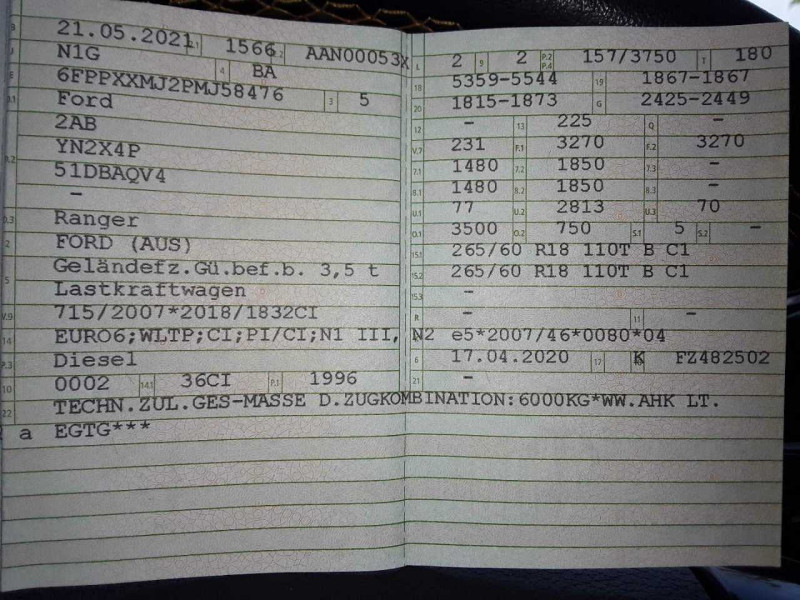 B 21.05.2021 2.1 1566 2.2 AAN00053X
J N1G
E 6FPPXXMJ2PMJ58476 4 BA
D.1 Ford 3 5
2AB
D.2 YN2X4P
51DBAQV4
–
D.3 Ranger
2 FORD (AUS)
5 Geländefz.Gü.bef.b. 3,5 t
Lastkraftwagen
V.9 715/2007*2018/1832CI
14 EURO6;WLTP;CI;PI/CI;N1 III, N2
P.3 Diesel
10 0002 14.1 36CI P.1 1996
22 TECHN.ZUL.GES-MASSE D.ZUGKOMBINATION:6000KG*WW.AHK LT.
a EGTG***
L 2 9 2 P.2 P.4 157/3750 T 180
18 5359-5544 19 1867-1867
20 1815-1873 G 2425-2449
12 – 13 225 Q –
V.7 231 F.1 3270 F.2 3270
7.1 1480 7.2 1850 7.3 –
8.1 1480 8.2 1850 8.3 –
U.1 77 U.2 2813 U.3 70
O.1 3500 O.2 750 S.1 5 S.2 –
15.1 265/60 R18 110T B C1
15.2 265/60 R18 110T B C1
15.3 –
R – 11 –
K e5*2007/46*0080*04
6 17.04.2020 17 K FZ482502
21 –